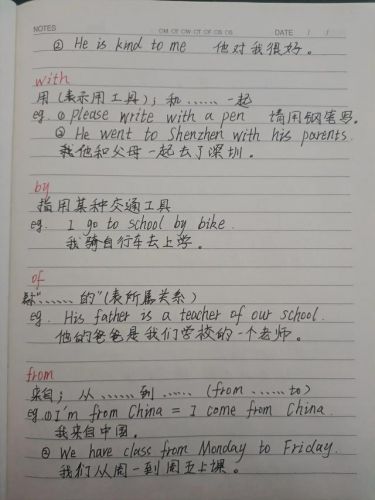 NOTES MO. TU. WE. TH. FR. SA. SU. DATE / /
② He is kind to me 他对我很好。
with
用(表示用工具); 和……一起
eg. ① please write with a pen 请用钢笔写。
② He went to Shenzhen with his parents.
我他和父母一起去了深圳。
by
指用某种交通工具
eg. I go to school by bike.
我骑自行车去上学。
of
"……的"(表所属关系)
eg. His father is a teacher of our school.
他的爸爸是我们学校的一个老师。
from
来自; 从……到…… (from……to)
eg. ① I'm from China = I come from China.
我来自中国。
② We have class from Monday to Friday.
我们从周一到周五上课。